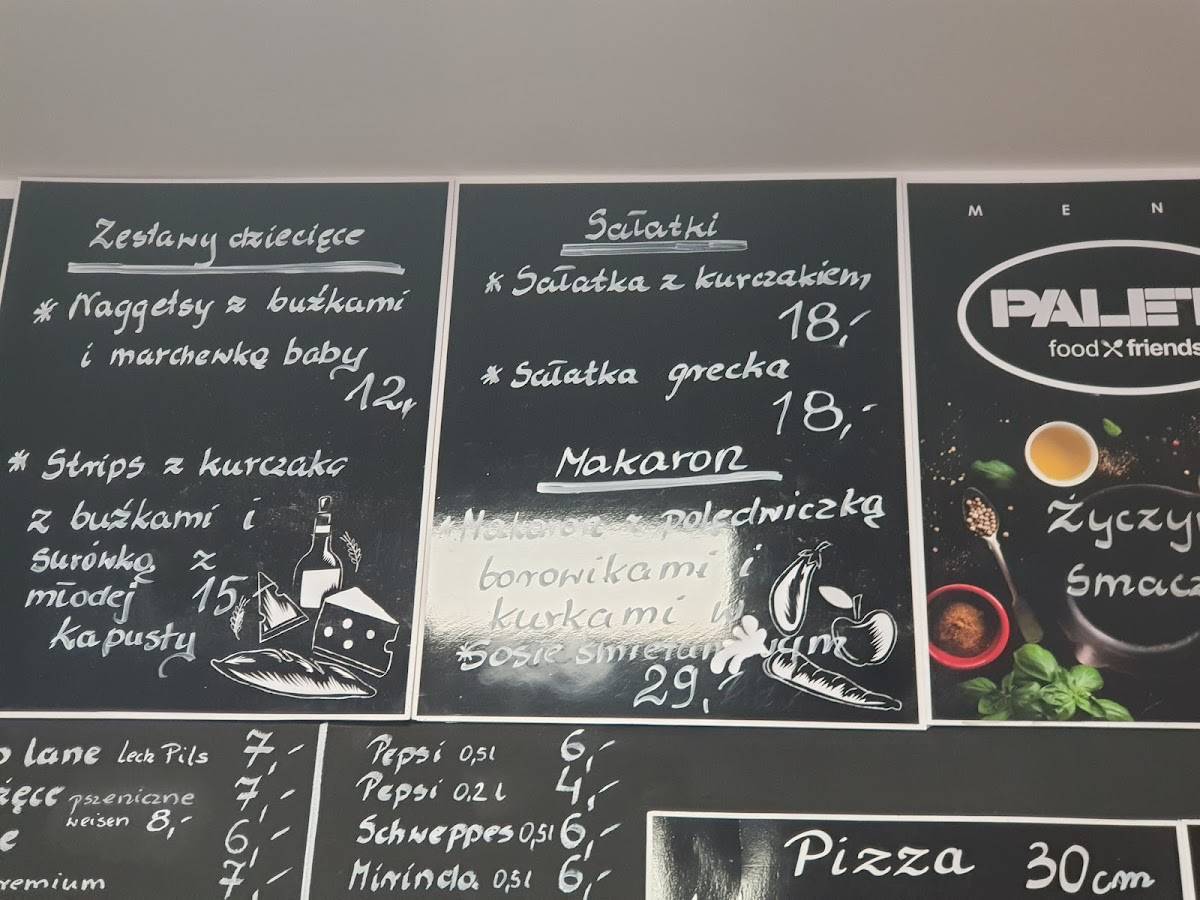 Zestawy dziecięce
* Naggetsy z buźkami
i marchewką baby
12,-
* Strips z kurczaka
z buźkami i
surówką z
młodej 15,-
kapusty
Sałatki
* Sałatka z kurczakiem
18,-
* Sałatka grecka
18,-
Makaron
* Makaron z polędwiczką
borowikami i
kurkami w
*Sosie
29,-
MEN
PALET
food friends
Życzy
smacz
lane Lech Pils 7,-
pszeniczne 7,-
weisen 8,-
6,-
7,-
Pepsi 0,5l 6,-
Pepsi 0,2l 4,-
Schweppes 0,5l 6,-
Mirinda 0,5l 6,-
Pizza 30cm